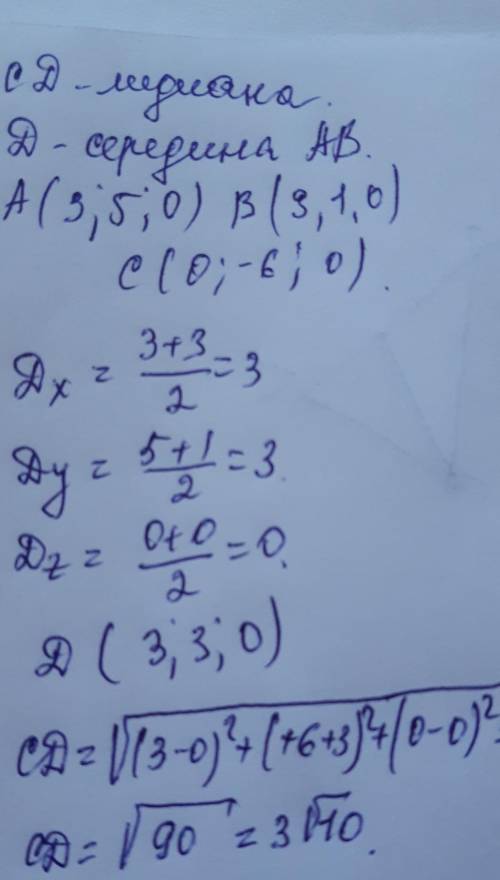 СД - медиана.
Д - середина АВ.
А(3;5;0) В(3,1,0)
С(0;-6;0).
Дx = 3+3/2 = 3
Дy = 5+1/2 = 3.
Дz = 0+0/2 = 0.
Д(3;3;0)
СД = √(3-0)²+(+6+3)²+(0-0)²
СД = √90 = 3√10.